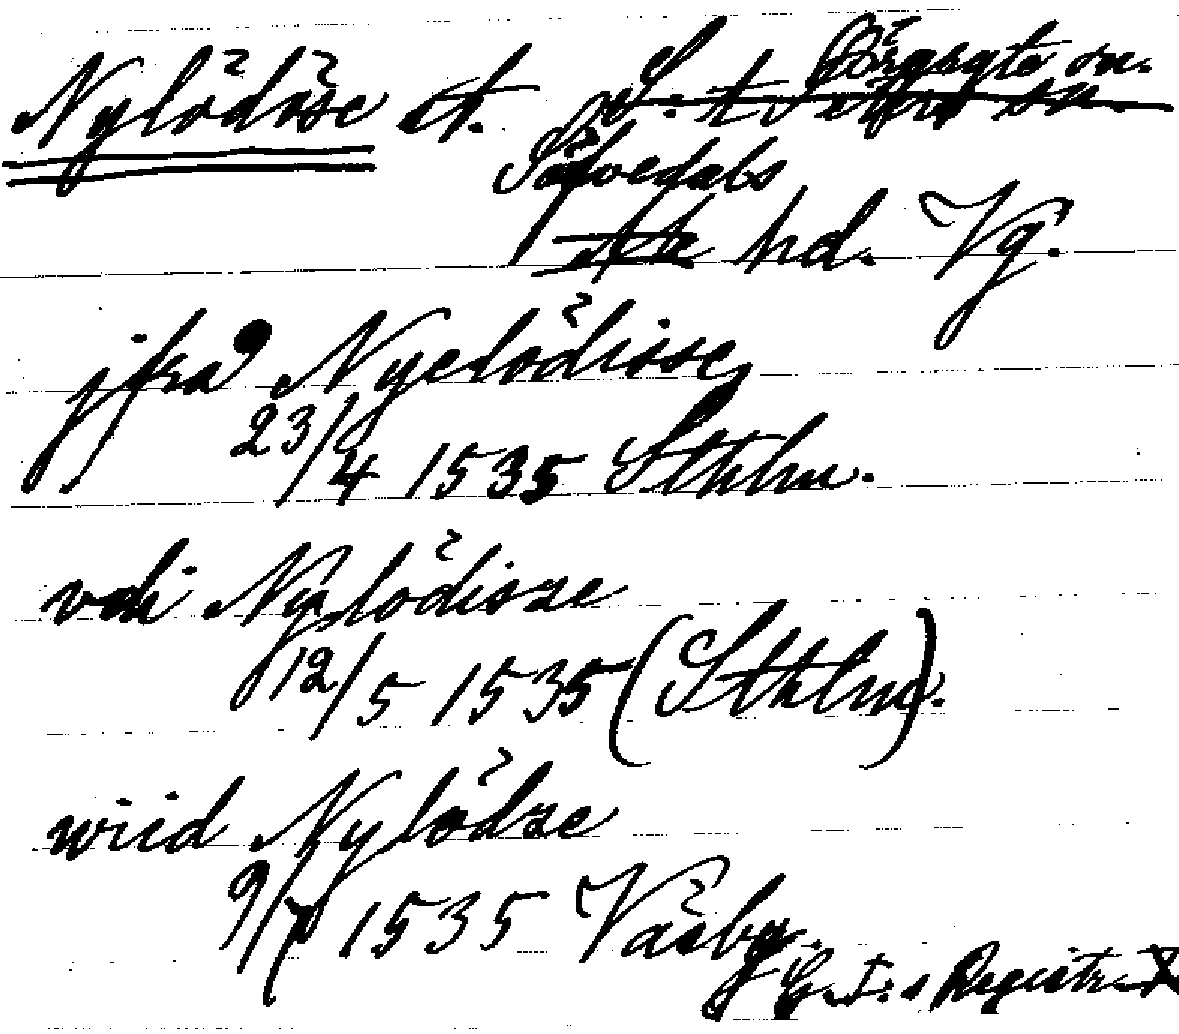 Nylödöse st. Örgryte sn.
S:t Peders sn.
Sävedals
hd. Vg.
jfra Nyelödisse,
23/4 1535 Sthlm.
vdi Nylödisze
12/5 1535 (Sthlm).
wiid Nylödze
9/7 1535 Väsby.
G. I:s Registr. X